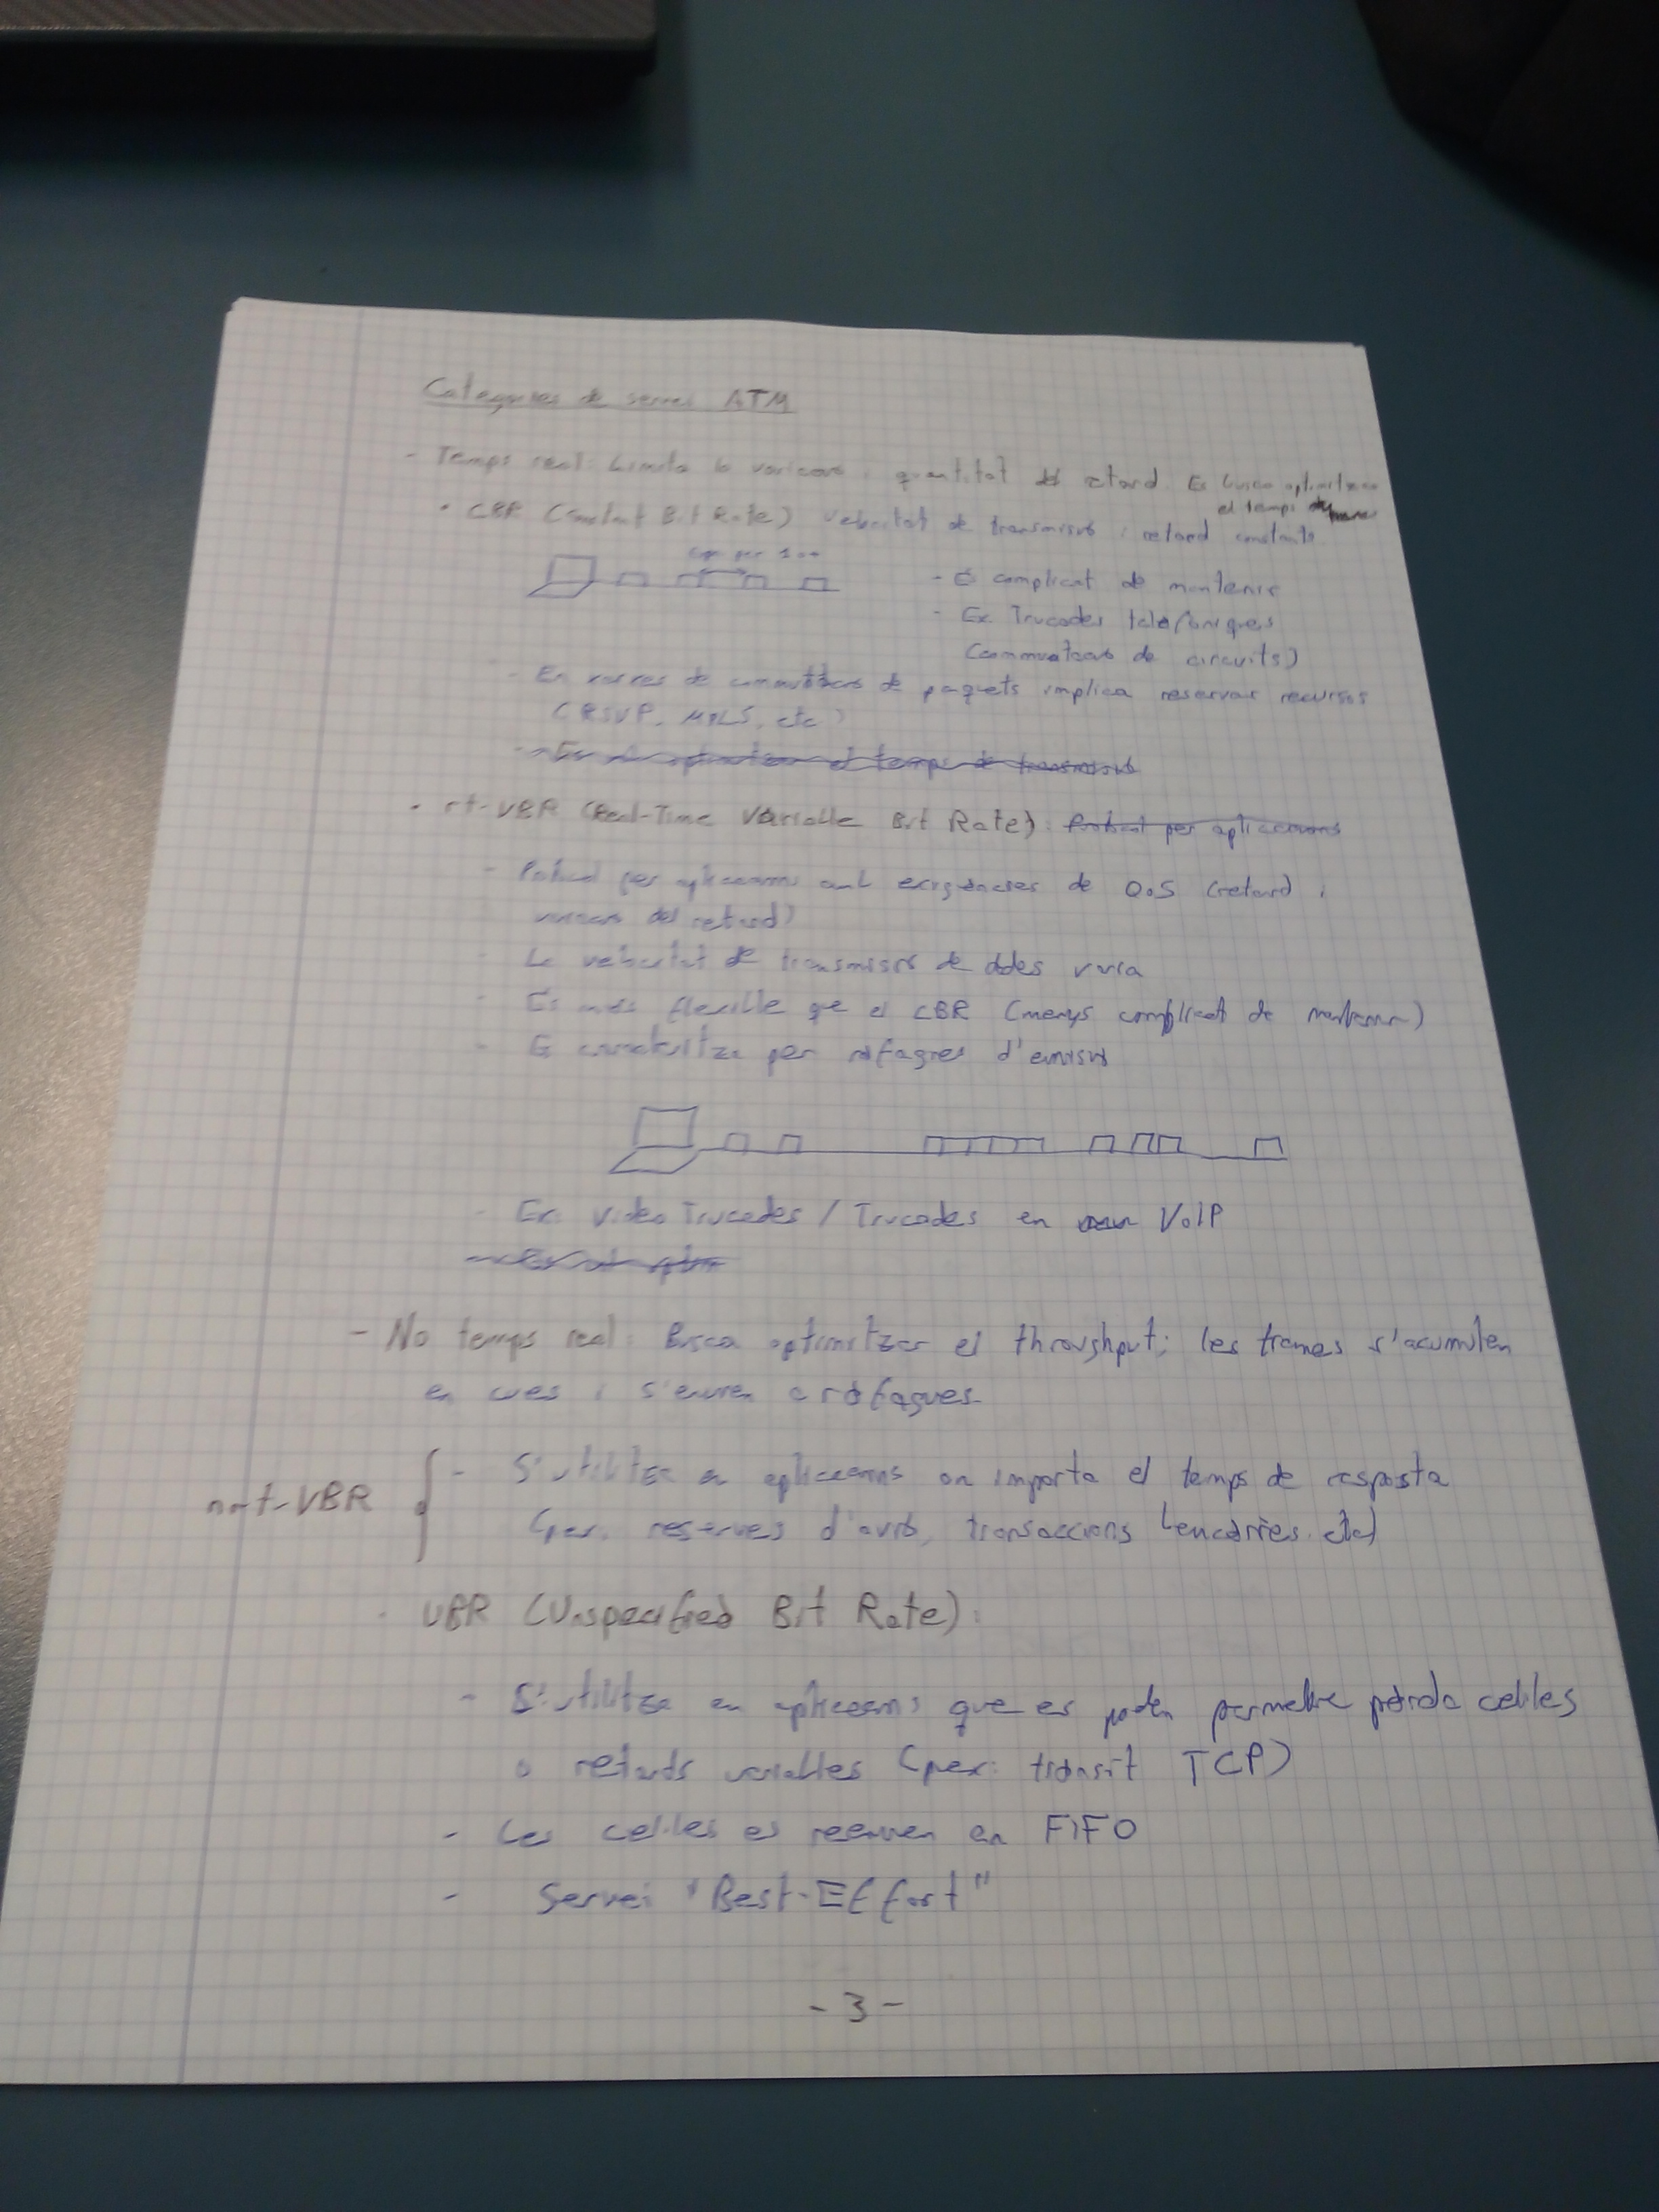 Categories de servei ATM
- Temps real: Limita la variació i quantitat del retard. Es busca optimitzar
el temps de
• CBR (Constant Bit Rate) velocitat de transmissió i retard constants
- És complicat de mantenir
- Ex Trucades telefòniques
(commutació de circuits)
- En xarxes de commutació de paquets implica reservar recursos
(RSVP, MPLS, etc)
- Es optimitzar el temps de transmissió
• rt-VBR (Real-Time Variable Bit Rate): Protocol per aplicacions
- Pensat per aplicacions amb exigències de QoS (retard i
variació del retard)
- La velocitat de transmissió de dades varia
- És més flexible que el CBR (menys complicat de mantenir)
- Es caracteritza per ràfagues d'emisió
- Ex: Video Trucades / Trucades en VoIP
- No temps real: Busca optimitzar el throughput; les trames s'acumulen
en cues i s'envien a ràfagues.
nrt-VBR
- S'utilitza en aplicacions on importa el temps de resposta
(p.ex. reserves d'avió, transaccions bancàries. etc)
· UBR (Unspecified Bit Rate):
- S'utilitza en aplicacions que es poden permetre pèrdua cel·les
o retards variables (p.ex: trànsit TCP)
- Les cel·les es reenvien en FIFO
- Servei "Best-Effort"
- 3 -